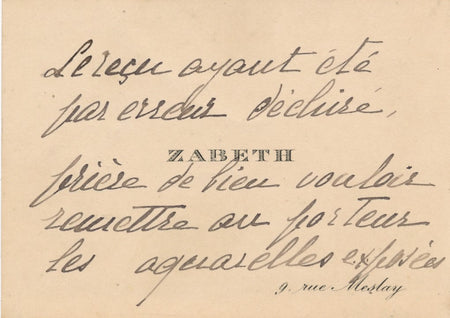 Le reçu ayant été
par erreur déchiré,
ZABETH
prière de bien vouloir
remettre au porteur
les aquarelles exposées
9, rue Meslay